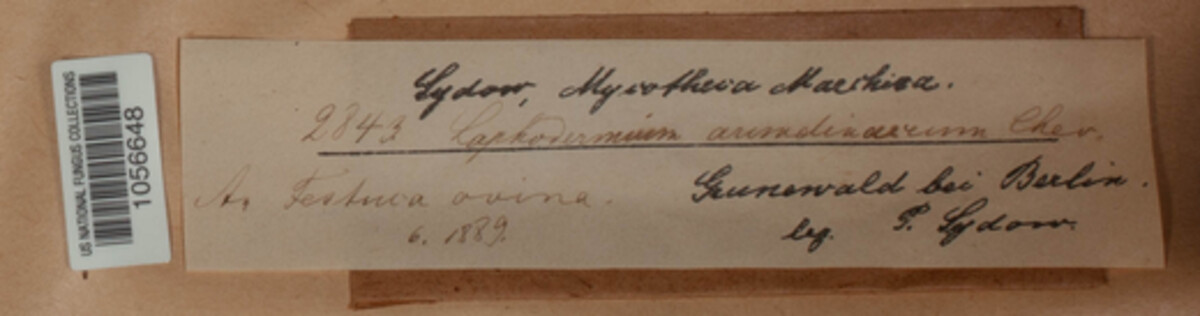 US NATIONAL FUNGUS COLLECTIONS
1056648
Sydow, Mycotheca Marchica.
2843 Lophodermium arundinaceum Chev.
An Festuca ovina.
6. 1889.
Grunewald bei Berlin.
leg. P. Sydow.